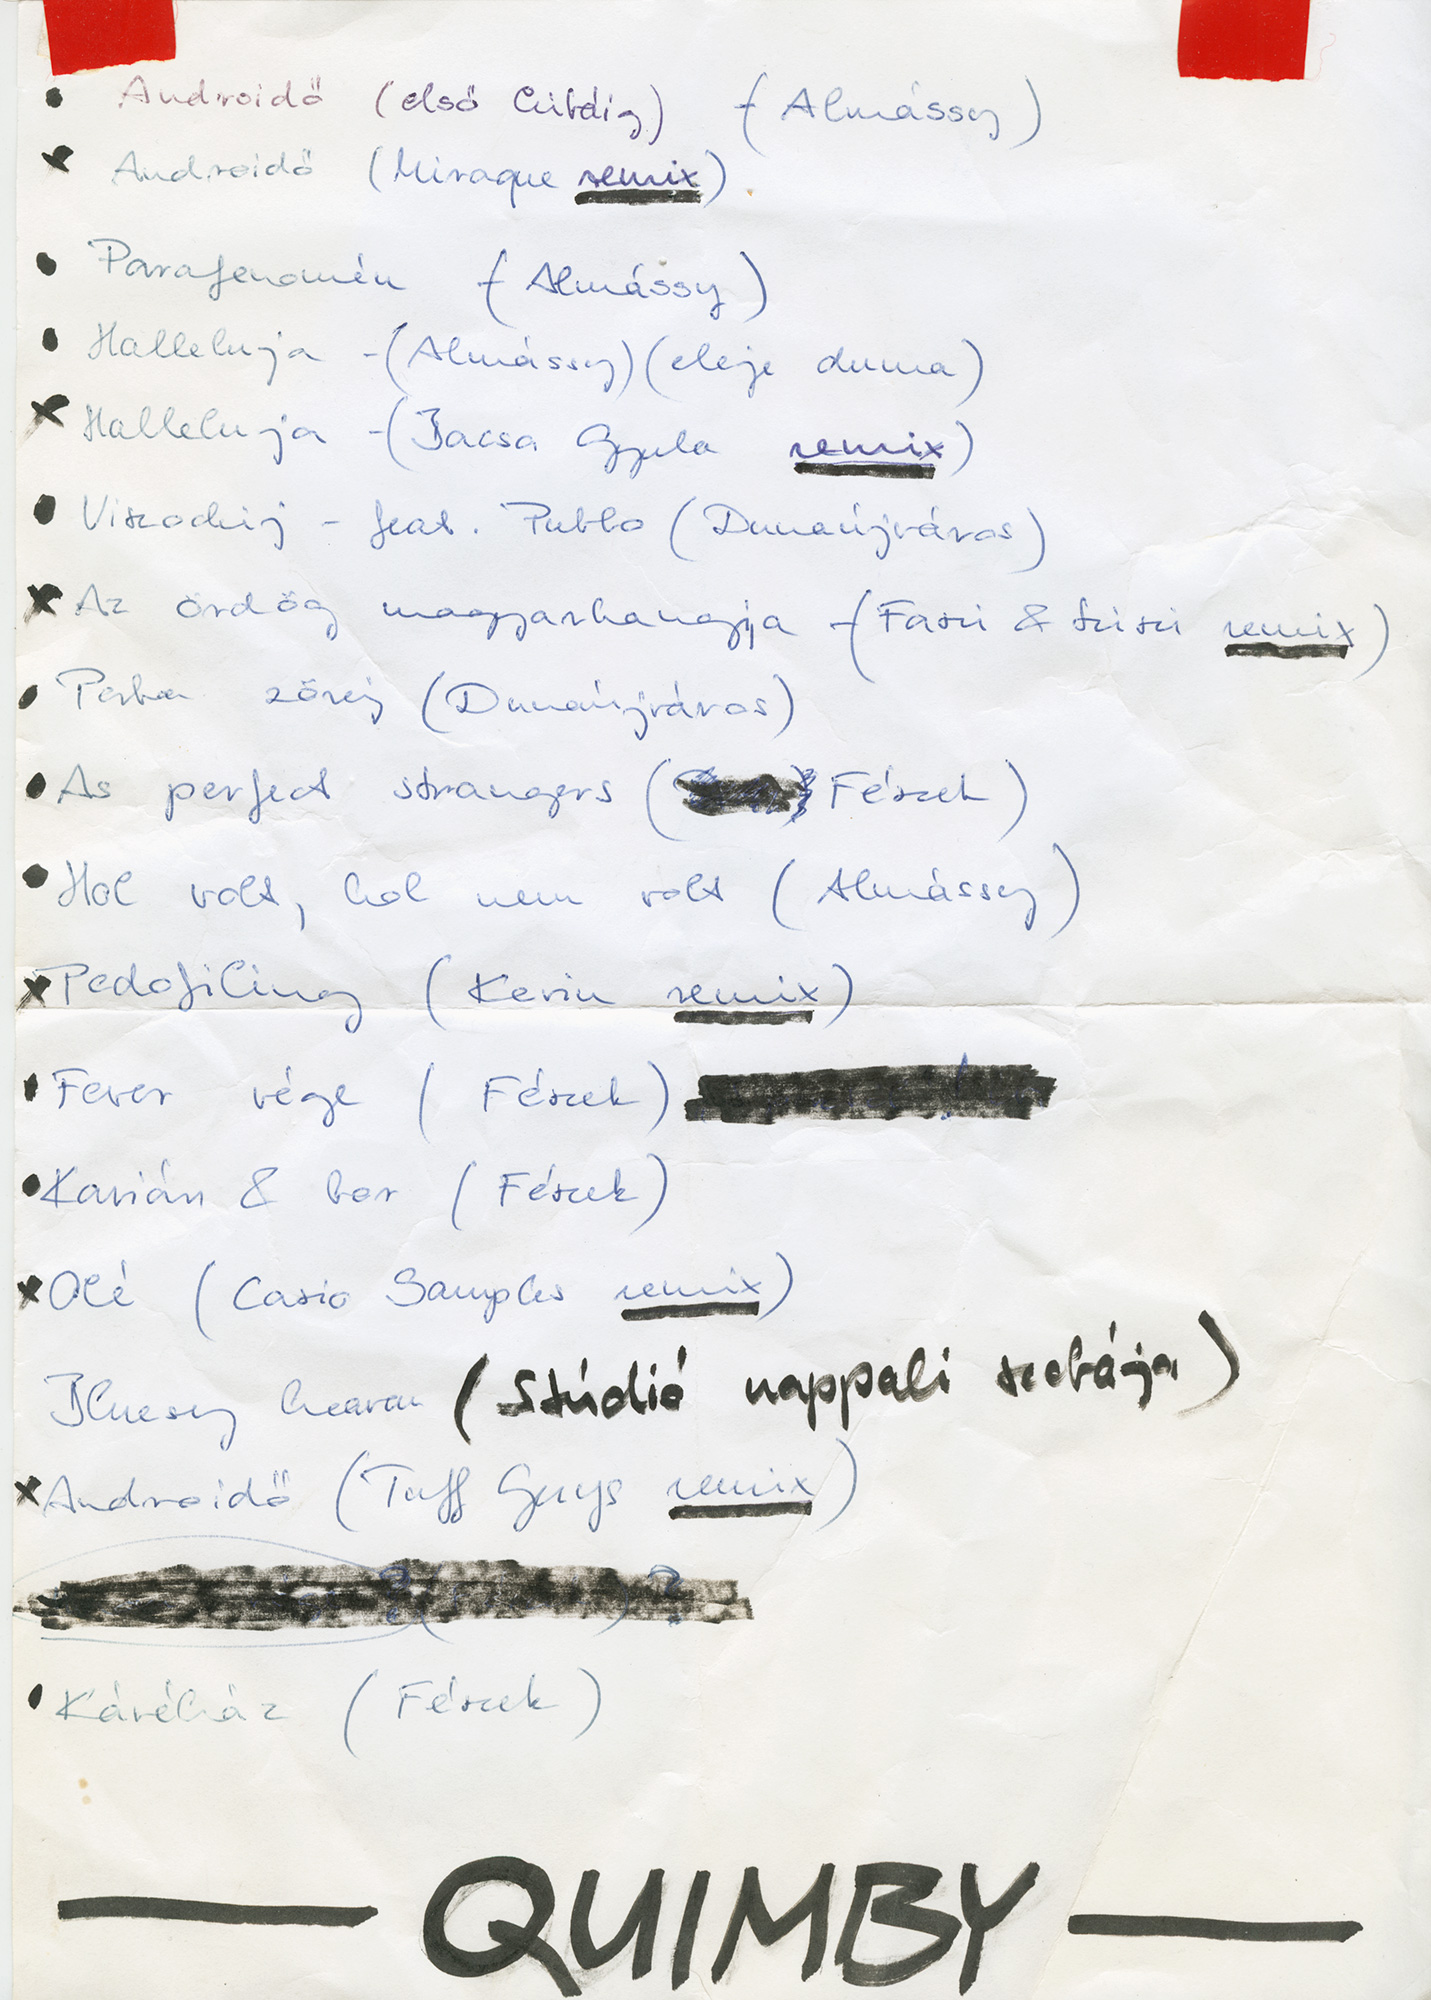 • Androidő (első hibáig) - (Almássy)
x Androidő (Miraque remix).
• Parafenomén - (Almássy)
• Halleluja - (Almássy) (eleje duma)
x Halleluja - (Bacsa Gyula remix)
• Viszockij - feat. Publo (Dunaújváros)
x Az ördög magyarhangja - (Faszi & Sziszi remix)
• Porba zörej (Dunaújváros)
• As perfect strangers (Fészek)
• Hol volt, hol nem volt (Almássy)
x Pedofiling (Kevin remix)
• Fever vége (Fészek)
• Kavián & bor (Fészek)
x Olé (Casio Samples remix)
Bluesy heaven (Stúdió nappali szobája)
x Androidő (Tuff Guys remix)
• Kávéház (Fészek)
— QUIMBY —